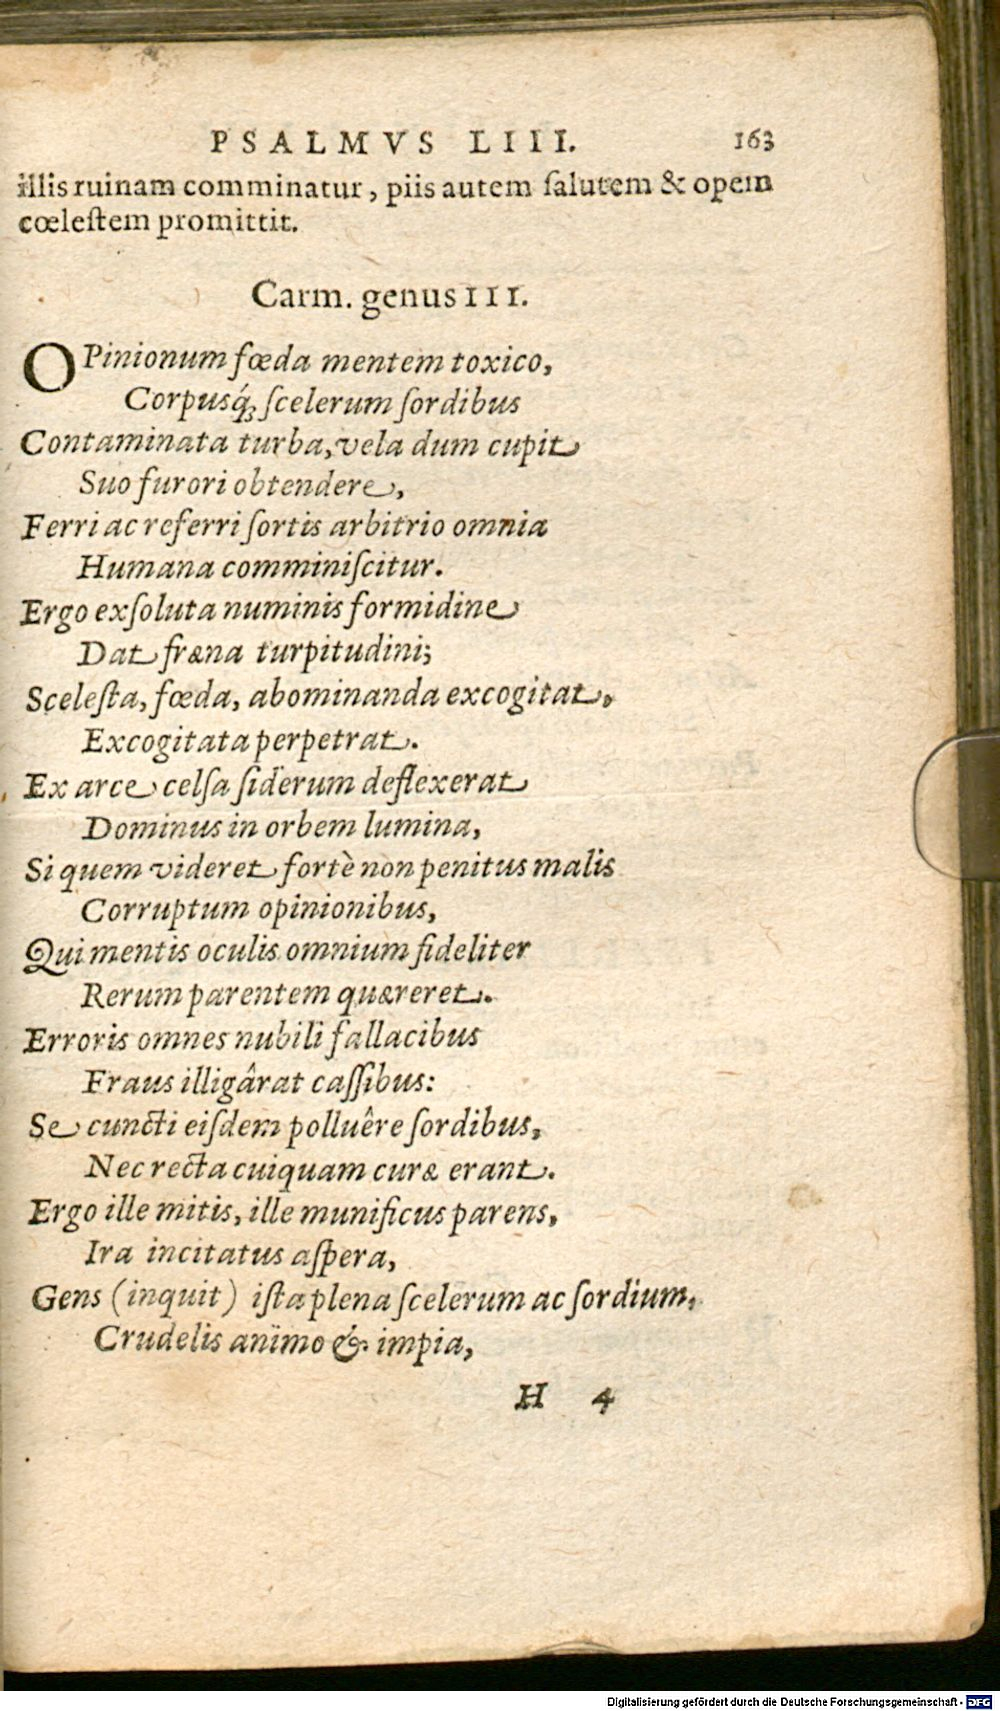 PSALMVS LIII. 163
illis ruinam comminatur, piis autem ſalutem & opem
cœleſtem promittit.
Carm. genus III.
OPinionum fœda mentem toxico,
Corpusq́; ſcelerum ſordibus
Contaminata turba, vela dum cupit
Suo furori obtendere,
Ferri ac referri ſortis arbitrio omnia
Humana comminiſcitur.
Ergo exſoluta numinis formidine
Dat fræna turpitudini;
Sceleſta, fœda, abominanda excogitat,
Excogitata perpetrat.
Ex arce celſa ſiderum deflexerat
Dominus in orbem lumina,
Si quem videret fortè non penitus malis
Corruptum opinionibus,
Qui mentis oculis omnium fideliter
Rerum parentem quæreret.
Erroris omnes nubili fallacibus
Fraus illigârat caſſibus:
Se cuncti eiſdem polluêre ſordibus,
Nec recta cuiquam curæ erant.
Ergo ille mitis, ille munificus parens,
Ira incitatus aſpera,
Gens (inquit) iſta plena ſcelerum ac ſordium,
Crudelis animo & impia,
H 4
Digitalisierung gefördert durch die Deutsche Forschungsgemeinschaft - DFG